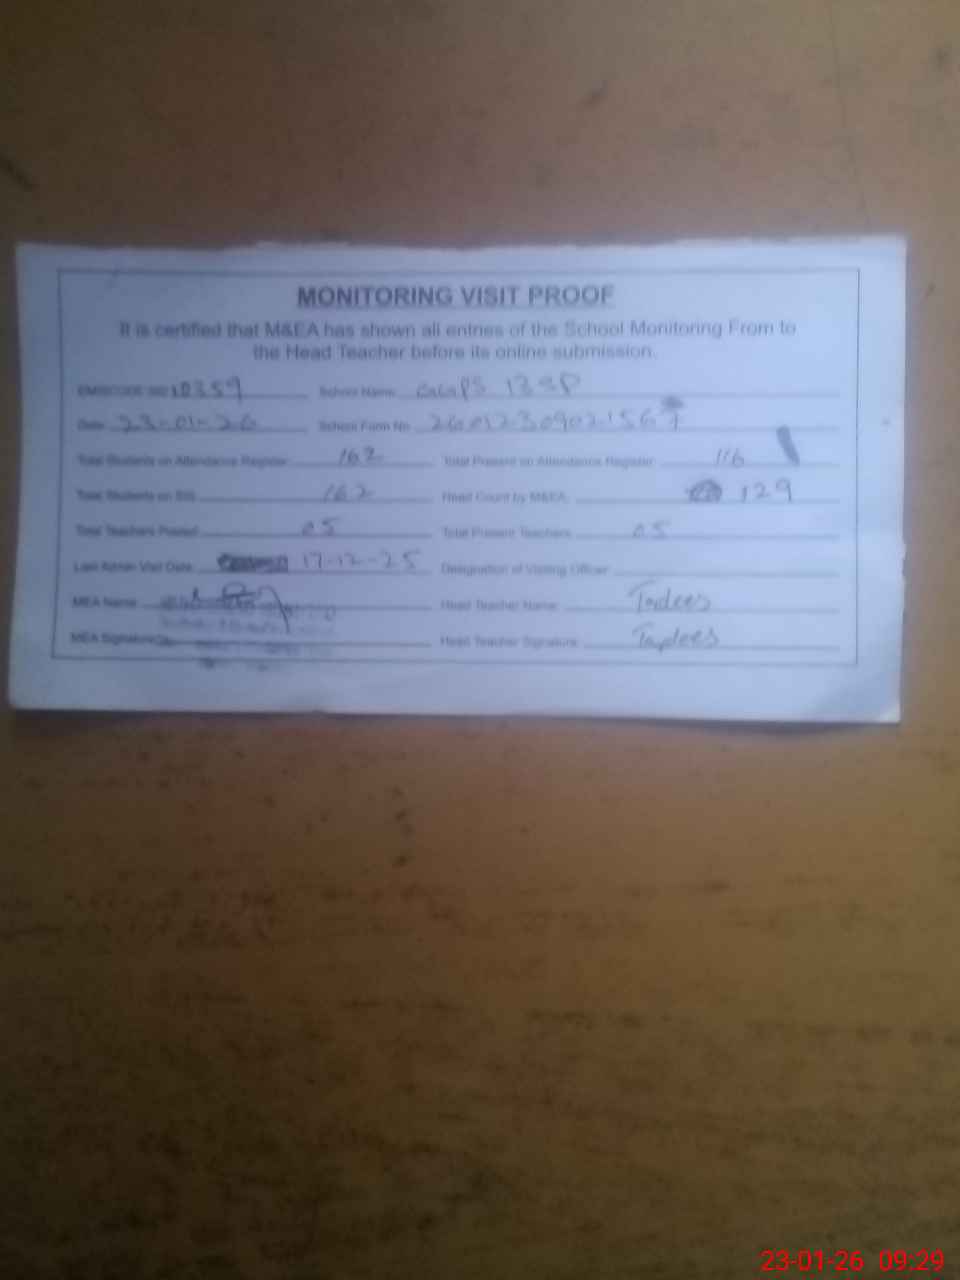 MONITORING VISIT PROOF
It is certified that M&EA has shown all entries of the School Monitoring From to
the Head Teacher before its online submission.
School Name: GGPS 13SP
Date: 23-01-26 School Form No.
Total Students on Attendance Register: 162 Total Present on Attendance Register: 116
Total Students on SIS: 162 Head Count by M&EA: 129
Total Teachers Posted: 05 Total Present Teachers: 05
Last Admin Visit Date: 17-12-25 Designation of Visiting Officer:
MEA Name: Head Teacher Name:
MEA Signature: Head Teacher Signature:
23-01-26 09:29